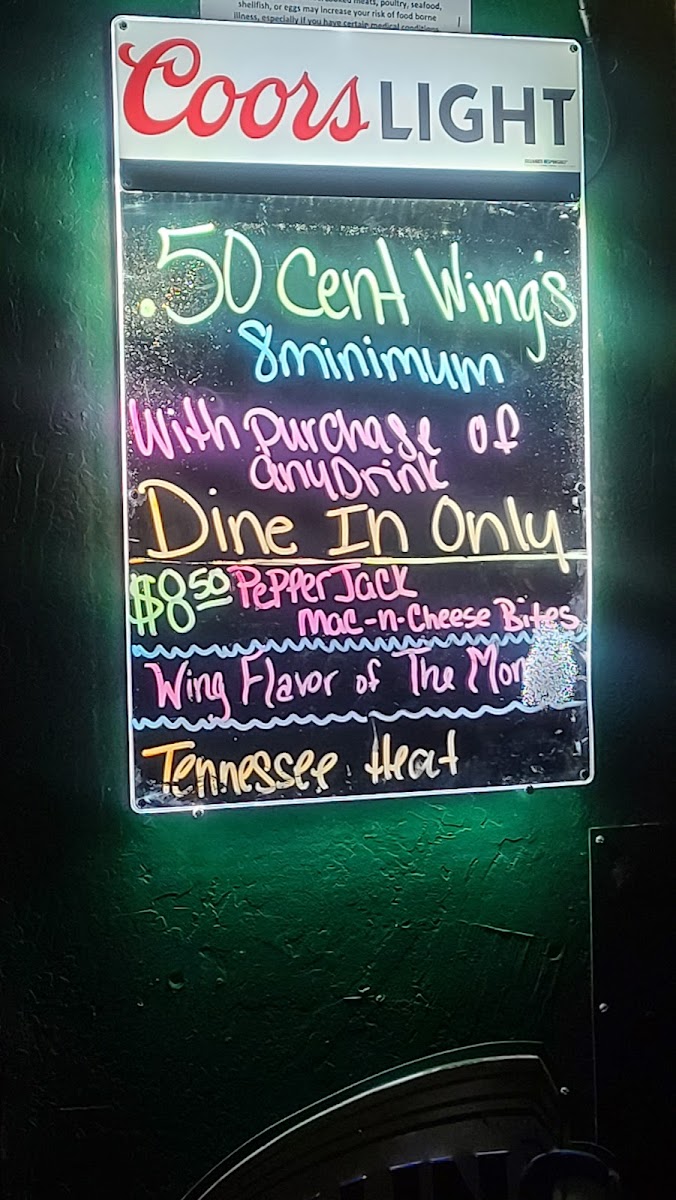 shellfish, or eggs may increase your risk of food borne
illness, especially if you have certain medical conditions
Coors LIGHT
.50 Cent Wing's
8 minimum
With purchase of
any Drink
Dine In Only
$8.50 PePPer Jack
Mac-n-Cheese Bites
Wing Flavor of The
Tennessee Heat